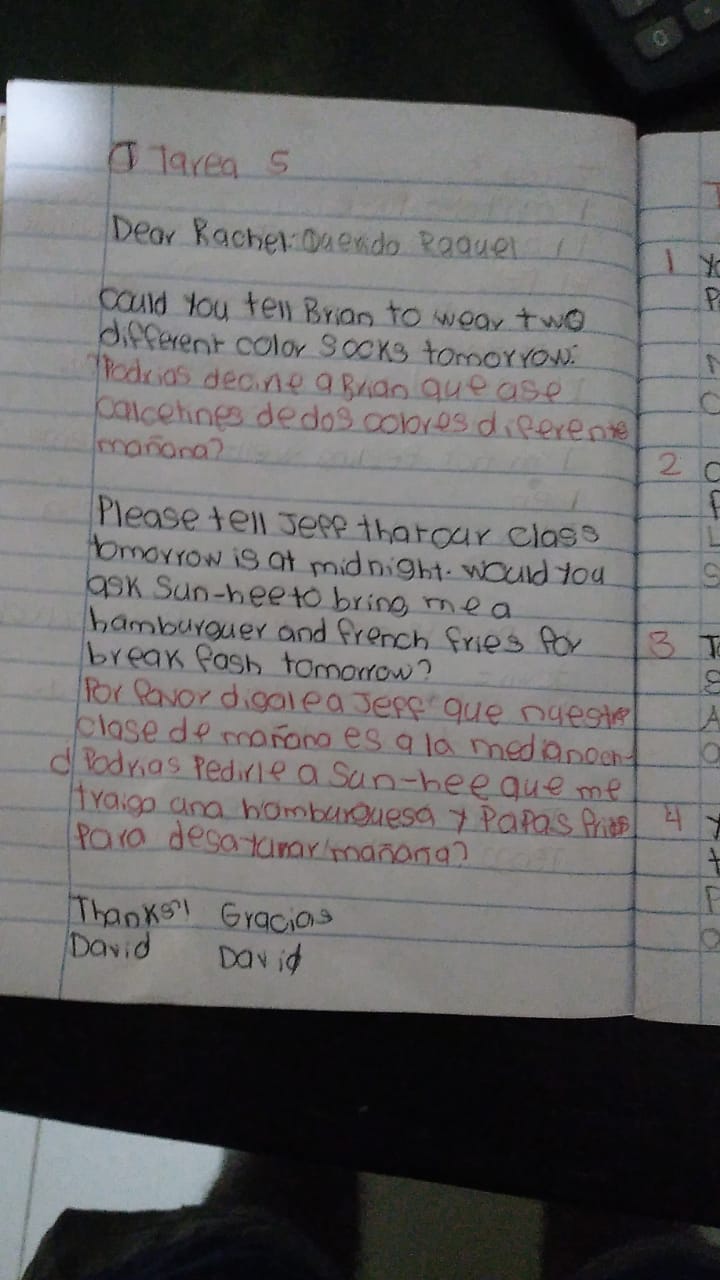 Tarea 5
Dear Rachel: Querido Raquel
could You tell Brian to wear two
different color socks tomorrow.
¿Podrias decirle a Brian que ase
calcetines de dos colores diferente
mañana?
Please tell Jeff that our class
tomorrow is at midnight. would You
ask Sun-hee to bring me a
hamburguer and french fries for
break fash tomorrow?
Por favor digale a Jeff que nuestra
clase de mañana es a la medianoch
d Podrias Pedirle a Sun-hee que me
traiga una hamburguesa y Papas frias
Para desayunar mañana?
Thanks!! Gracias
David David
1
2
3
4